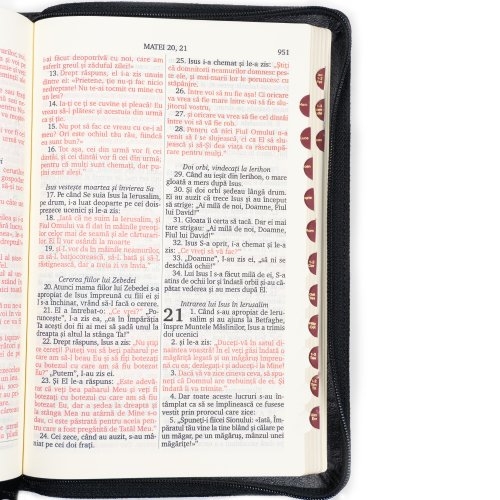 MATEI 20, 21
951
i-ai făcut deopotrivă cu noi, care am
suferit greul și zăduful zilei!”
13. Drept răspuns, el i-a zis unuia
dintre ei: «Prietene, ție nu-ți fac nici o
nedreptate! Nu te-ai tocmit cu mine cu
un leu?
14. Ia-ți ce ți se cuvine și pleacă! Eu
vreau să-i plătesc și acestuia din urmă
ca și ție.
15. Nu pot să fac ce vreau cu ce-i al
meu? Ori este ochiul tău rău, fiindcă
eu sunt bun?»
16. Tot așa, cei din urmă vor fi cei
dintâi, și cei dintâi vor fi cei din urmă;
pentru că mulți sunt chemați, dar pu-
țini aleși.”
Isus vestește moartea și învierea Sa
17. Pe când Se suia Isus la Ierusalim,
pe drum, i-a luat deoparte pe cei doi-
sprezece ucenici și le-a zis:
18. „Iată că ne suim la Ierusalim, și
Fiul Omului va fi dat în mâinile preoți-
lor celor mai de seamă și ale cărturari-
lor Ei Îl vor osândi la moarte
19. și-L vor da în mâinile neamurilor,
ca să-L batjocorească, să-L bată și să-L
răstignească, dar a treia zi va învia.”
Cererea fiilor lui Zebedei
20. Atunci mama fiilor lui Zebedei s-a
apropiat de Isus împreună cu fiii ei și
I s-a închinat, vrând să-I facă o cerere.
21. El a întrebat-o: „Ce vrei?” „Po-
runcește”, I-a zis ea, „ca în Împărăția
Ta acești doi fii ai mei să șadă unul la
dreapta și altul la stânga Ta!”
22. Drept răspuns, Isus a zis: „Nu știți
ce cereți! Puteți voi să beți paharul pe
care am să-l beau Eu și să fiți botezați
cu botezul cu care am să fiu botezat
Eu?” „Putem”, I-au zis ei.
23. Și El le-a răspuns: „Este adevă-
rat că veți bea paharul Meu și veți fi
botezați cu botezul cu care am să fiu
botezat Eu, dar a ședea la dreapta și
la stânga Mea nu atârnă de Mine s-o
dau, ci este păstrată pentru aceia pen-
tru care a fost pregătită de Tatăl Meu.”
24. Cei zece, când au auzit, s-au mâ-
niat pe cei doi frați.
25. Isus i-a chemat și le-a zis: „Știți
că domnitorii neamurilor domnesc pes-
te ele, și mai-marii lor le poruncesc cu
stăpânire.
26. Între voi să nu fie așa! Ci oricare
va vrea să fie mare între voi să fie slu-
jitorul vostru,
27. și oricare va vrea să fie cel dintâi
între voi să vă fie rob.
28. Pentru că nici Fiul Omului n-a
venit să I se slujească, ci ca El să slu-
jească și să-Și dea viața ca răscumpă-
rare pentru mulți.”
Doi orbi, vindecați la Ierihon
29. Când au ieșit din Ierihon, o mare
gloată a mers după Isus.
30. Și doi orbi ședeau lângă drum.
Ei au auzit că trece Isus și au început
să strige: „Ai milă de noi, Doamne, Fiul
lui David!”
31. Gloata îi certa să tacă. Dar ei mai
tare strigau: „Ai milă de noi, Doamne,
Fiul lui David!”
32. Isus S-a oprit, i-a chemat și le-a
zis: „Ce vreți să vă fac?”
33. „Doamne”, I-au zis ei, „să ni se
deschidă ochii!”
34. Lui Isus I s-a făcut milă de ei, S-a
atins de ochii lor și îndată orbii și-au că-
pătat vederea și au mers după El.
Intrarea lui Isus în Ierusalim
21 1. Când s-au apropiat de Ieru-
salim și au ajuns la Betfaghe,
înspre Muntele Măslinilor, Isus a trimis
doi ucenici
2. și le-a zis: „Duceți-vă în satul di-
naintea voastră! În el veți găsi îndată o
măgăriță legată și un măgăruș împreu-
nă cu ea; dezlegați-i și aduceți-i la Mine!
3. Dacă vă va zice cineva ceva, să spu-
neți că Domnul are trebuință de ei. Și
îndată îi va trimite.”
4. Dar toate aceste lucruri s-au în-
tâmplat ca să se împlinească ce fusese
vestit prin prorocul care zice:
5. „Spuneți-i fiicei Sionului: «Iată, Îm-
păratul tău vine la tine blând și călare pe
un măgar, pe un măgăruș, mânzul unei
măgărițe!»